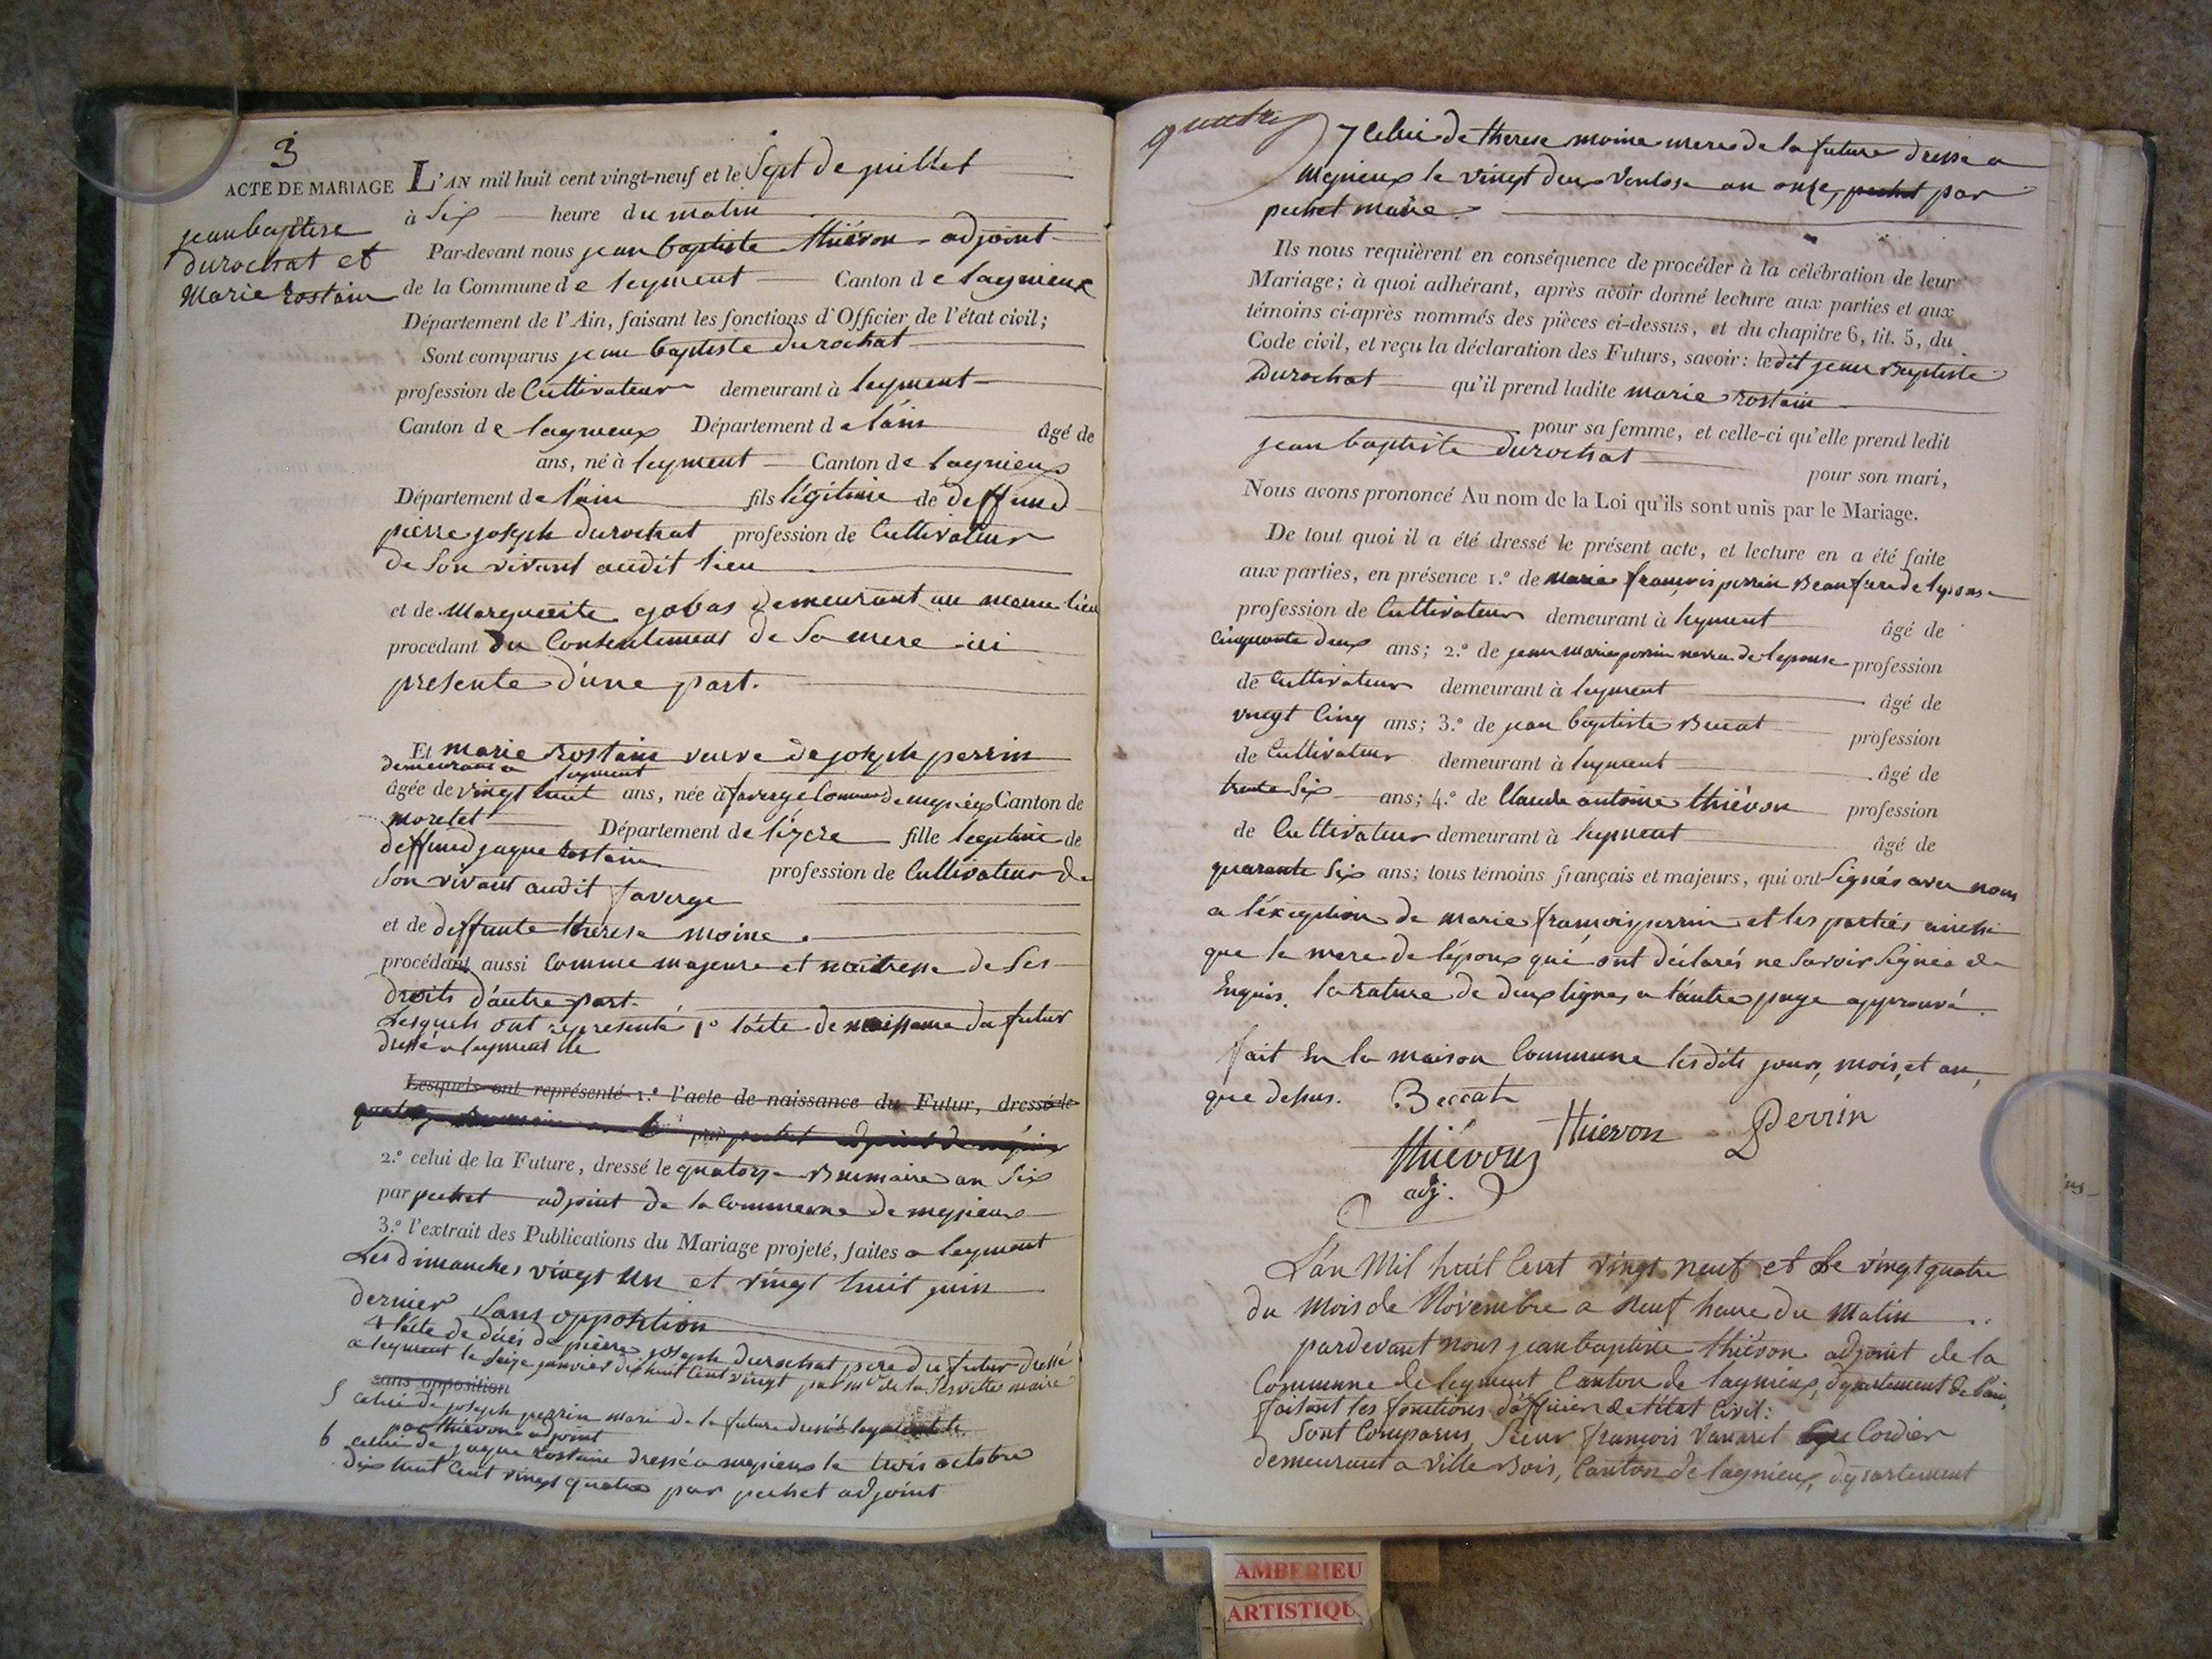 3
ACTE DE MARIAGE
jean baptiste
durochat et
Marie rostain
L'AN mil huit cent vingt-neuf et le Sept de juillet
à Six heure du matin
Par-devant nous jean baptiste thiévon adjoint
de la Commune de leyment Canton de lagnieux
Département de l'Ain, faisant les fonctions d'Officier de l'état civil;
Sont comparus jean baptiste durochat
profession de Cultivateur demeurant à leyment
Canton de lagnieux Département de l'ain âgé de
ans, né à leyment Canton de lagnieux
Département de l'ain fils légitime de deffund
pierre joseph durochat profession de Cultivateur
de Son vivant audit lieu
et de Marguerite gobas demeurant au meme lieu
procédant du Consentement de Sa mere ici
presente d'une part.
Et marie rostain veuve de joseph perrin
demeurant a leyment
âgée de vingt huit ans, née à faverge Commune de mepieux Canton de
moretet Département de l'izere fille legitime de
deffund jaque rostain profession de Cultivateur de
Son vivant audit faverge
et de deffunte therese moine
procédant aussi Comme majeure et maitresse de Ses
droits d'autre part.
Lesquels ont representé 1º l'acte de naissance du futur
dressé a leyment le
Lesquels ont représenté 1.º l'acte de naissance du Futur, dressé le
2.º celui de la Future, dressé le quatorze Brumaire an Six
par pechet adjoint de la Commune de mepieux
3.º l'extrait des Publications du Mariage projeté, faites a leyment
Les dimanches vingt un et vingt huit juin
dernier Sans opposition
4 l'acte de décés de pierre joseph durochat pere du futur dressé
a leyment le Seize janvier dix huit Cent vingt par mr de la Servette maire
sans opposition
5 celui de joseph perrin mari de la future dressé a leyment le
par thiévon adjoint
6 celui de jaque rostaine dressé a mepieux le trois octobre
dix huit Cent vingt quatre par pechet adjoint
quatre
7 Celui de therese moine mere de la future dressé a
Mepieux le vingt deux Ventose an onze, pechet par
pechet maire.
Ils nous requièrent en conséquence de procéder à la célébration de leur
Mariage; à quoi adhérant, après avoir donné lecture aux parties et aux
témoins ci-après nommés des pièces ci-dessus, et du chapitre 6, tit. 5, du
Code civil, et reçu la déclaration des Futurs, savoir: ledit jean Baptiste
Durochat qu'il prend ladite marie rostain
pour sa femme, et celle-ci qu'elle prend ledit
jean baptiste durochat pour son mari,
Nous avons prononcé Au nom de la Loi qu'ils sont unis par le Mariage.
De tout quoi il a été dressé le présent acte, et lecture en a été faite
aux parties, en présence 1.º de Marie françois perrin Beaufrere de lepouse
profession de Cultivateur demeurant à leyment âgé de
Cinquante deux ans; 2.º de jean Marie perrin neveu de lepouse profession
de Cultivateur demeurant à leyment âgé de
vingt Cinq ans; 3.º de jean baptiste Beccat profession
de Cultivateur demeurant à leyment âgé de
trente Six ans; 4.º de Claude antoine thiévon profession
de Cultivateur demeurant à leyment âgé de
quarante Six ans; tous témoins français et majeurs, qui ont Signés avec nous
a l'éxception de marie françois perrin et les parties ainssi
que la mere de lépoux qui ont déclarés ne Savoir Signer de
Enquis. la rature de deux lignes a l'autre page approuvé.
fait En la maison Commune lesdits jour, mois, et an,
que dessus. Beccat
Thiévon Thievon Perrin
adj.
L'an Mil huit Cent vingt neuf et Le vingt quatre
du Mois de Novembre a Neuf heure du Matin
pardevant nous jean baptiste thiévon adjoint de la
Commune de leyment Canton de lagnieux, département de l'ain,
faisant les fonctions d'officier de létat Civil:
Sont Comparus Sieur françois Vanaret Cordier
demeurant a Ville Bois, Canton de lagnieux, département
AMBERIEU
ARTISTIQU